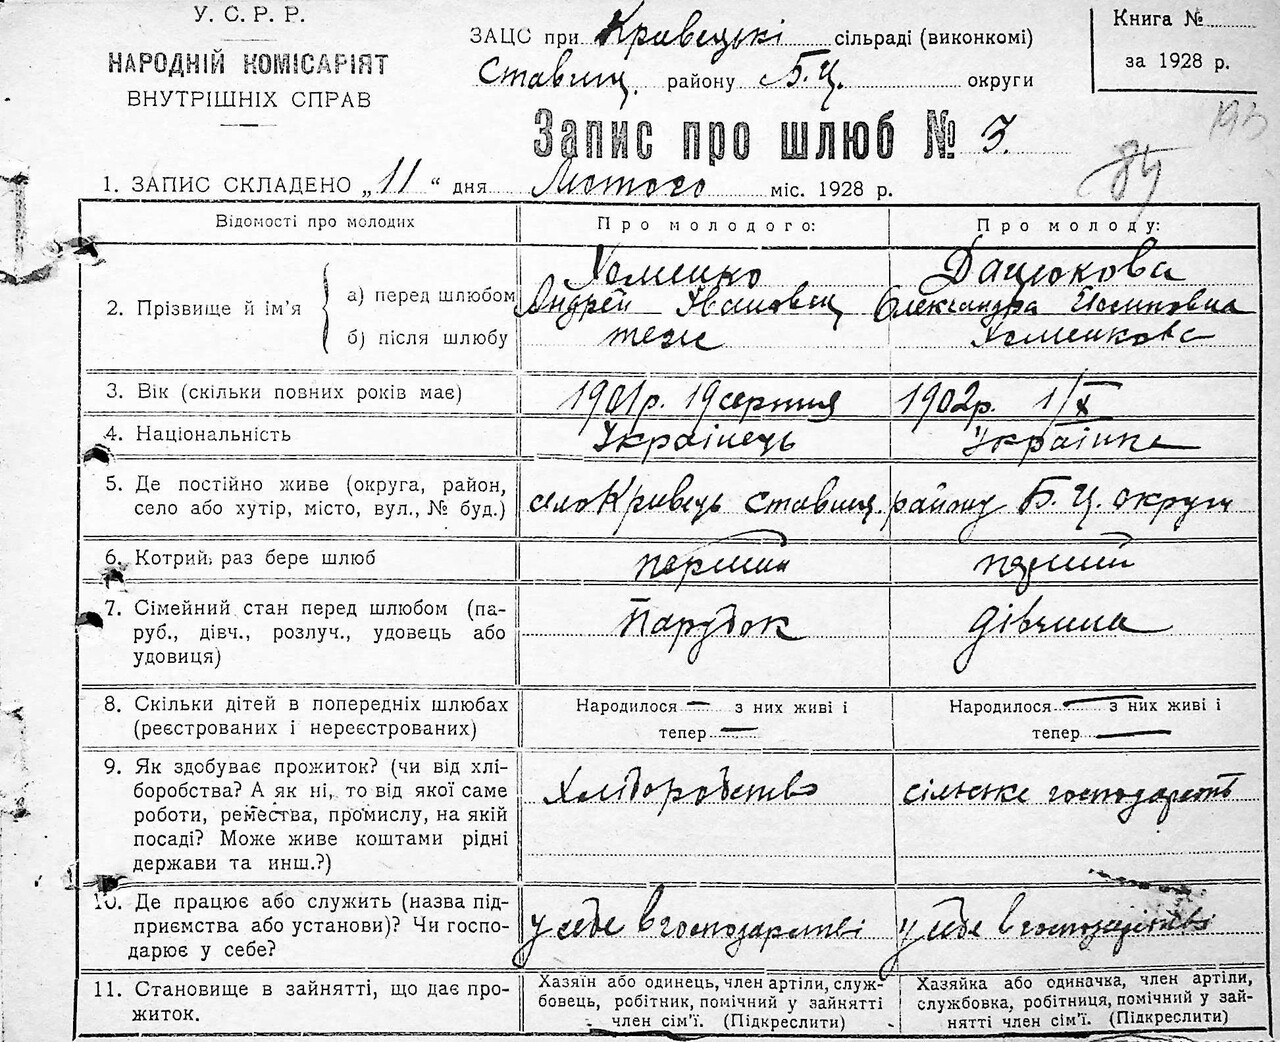 У. С. Р. Р.
НАРОДНІЙ КОМІСАРІЯТ
ВНУТРІШНІХ СПРАВ
ЗАЦС при Кривецькі сільраді (виконкомі)
Ставищ. району Б.Ц. округи
Книга №
за 1928 р.
Запис про шлюб № 3.
193
84
1. ЗАПИС СКЛАДЕНО „11“ дня Лютого міс. 1928 р.
Відомості про молодих
Про молодого:
Про молоду:
2. Прізвище й ім'я
а) перед шлюбом
б) після шлюбу
Хоменко
Андрей Іванович
теж
Дацюкова
Олександра Йосиповна
Хоменкова
3. Вік (скільки повних років має)
1901р. 19 серпня
1902р. 1/X
4. Національність
Українець
Українка
5. Де постійно живе (округа, район,
село або хутір, місто, вул., № буд.)
село Кривець Ставищ. району Б.Ц. округи
6. Котрий раз бере шлюб
перший
перший
7. Сімейний стан перед шлюбом (па-
руб., дівч., розлуч., удовець або
удовиця)
Парубок
дівчина
8. Скільки дітей в попередніх шлюбах
(реєстрованих і нереєстрованих)
Народилося — з них живі і
тепер —
Народилося — з них живі і
тепер —
9. Як здобуває прожиток? (чи від хлі-
боробства? А як ні, то від якої саме
роботи, ремества, промислу, на якій
посаді? Може живе коштами рідні
держави та инш.?)
Хліборобство
сільське господарств
10. Де працює або служить (назва під-
приємства або установи)? Чи госпо-
дарює у себе?
у себе в господарстві
у себе в господарстві
11. Становище в зайнятті, що дає про-
житок.
Хазяїн або одинець, член артілі, служ-
бовець, робітник, помічний у зайнятті
член сім'ї. (Підкреслити)
Хазяйка або одиначка, член артілі,
службовка, робітниця, помічний у зай-
нятті член сім'ї. (Підкреслити)